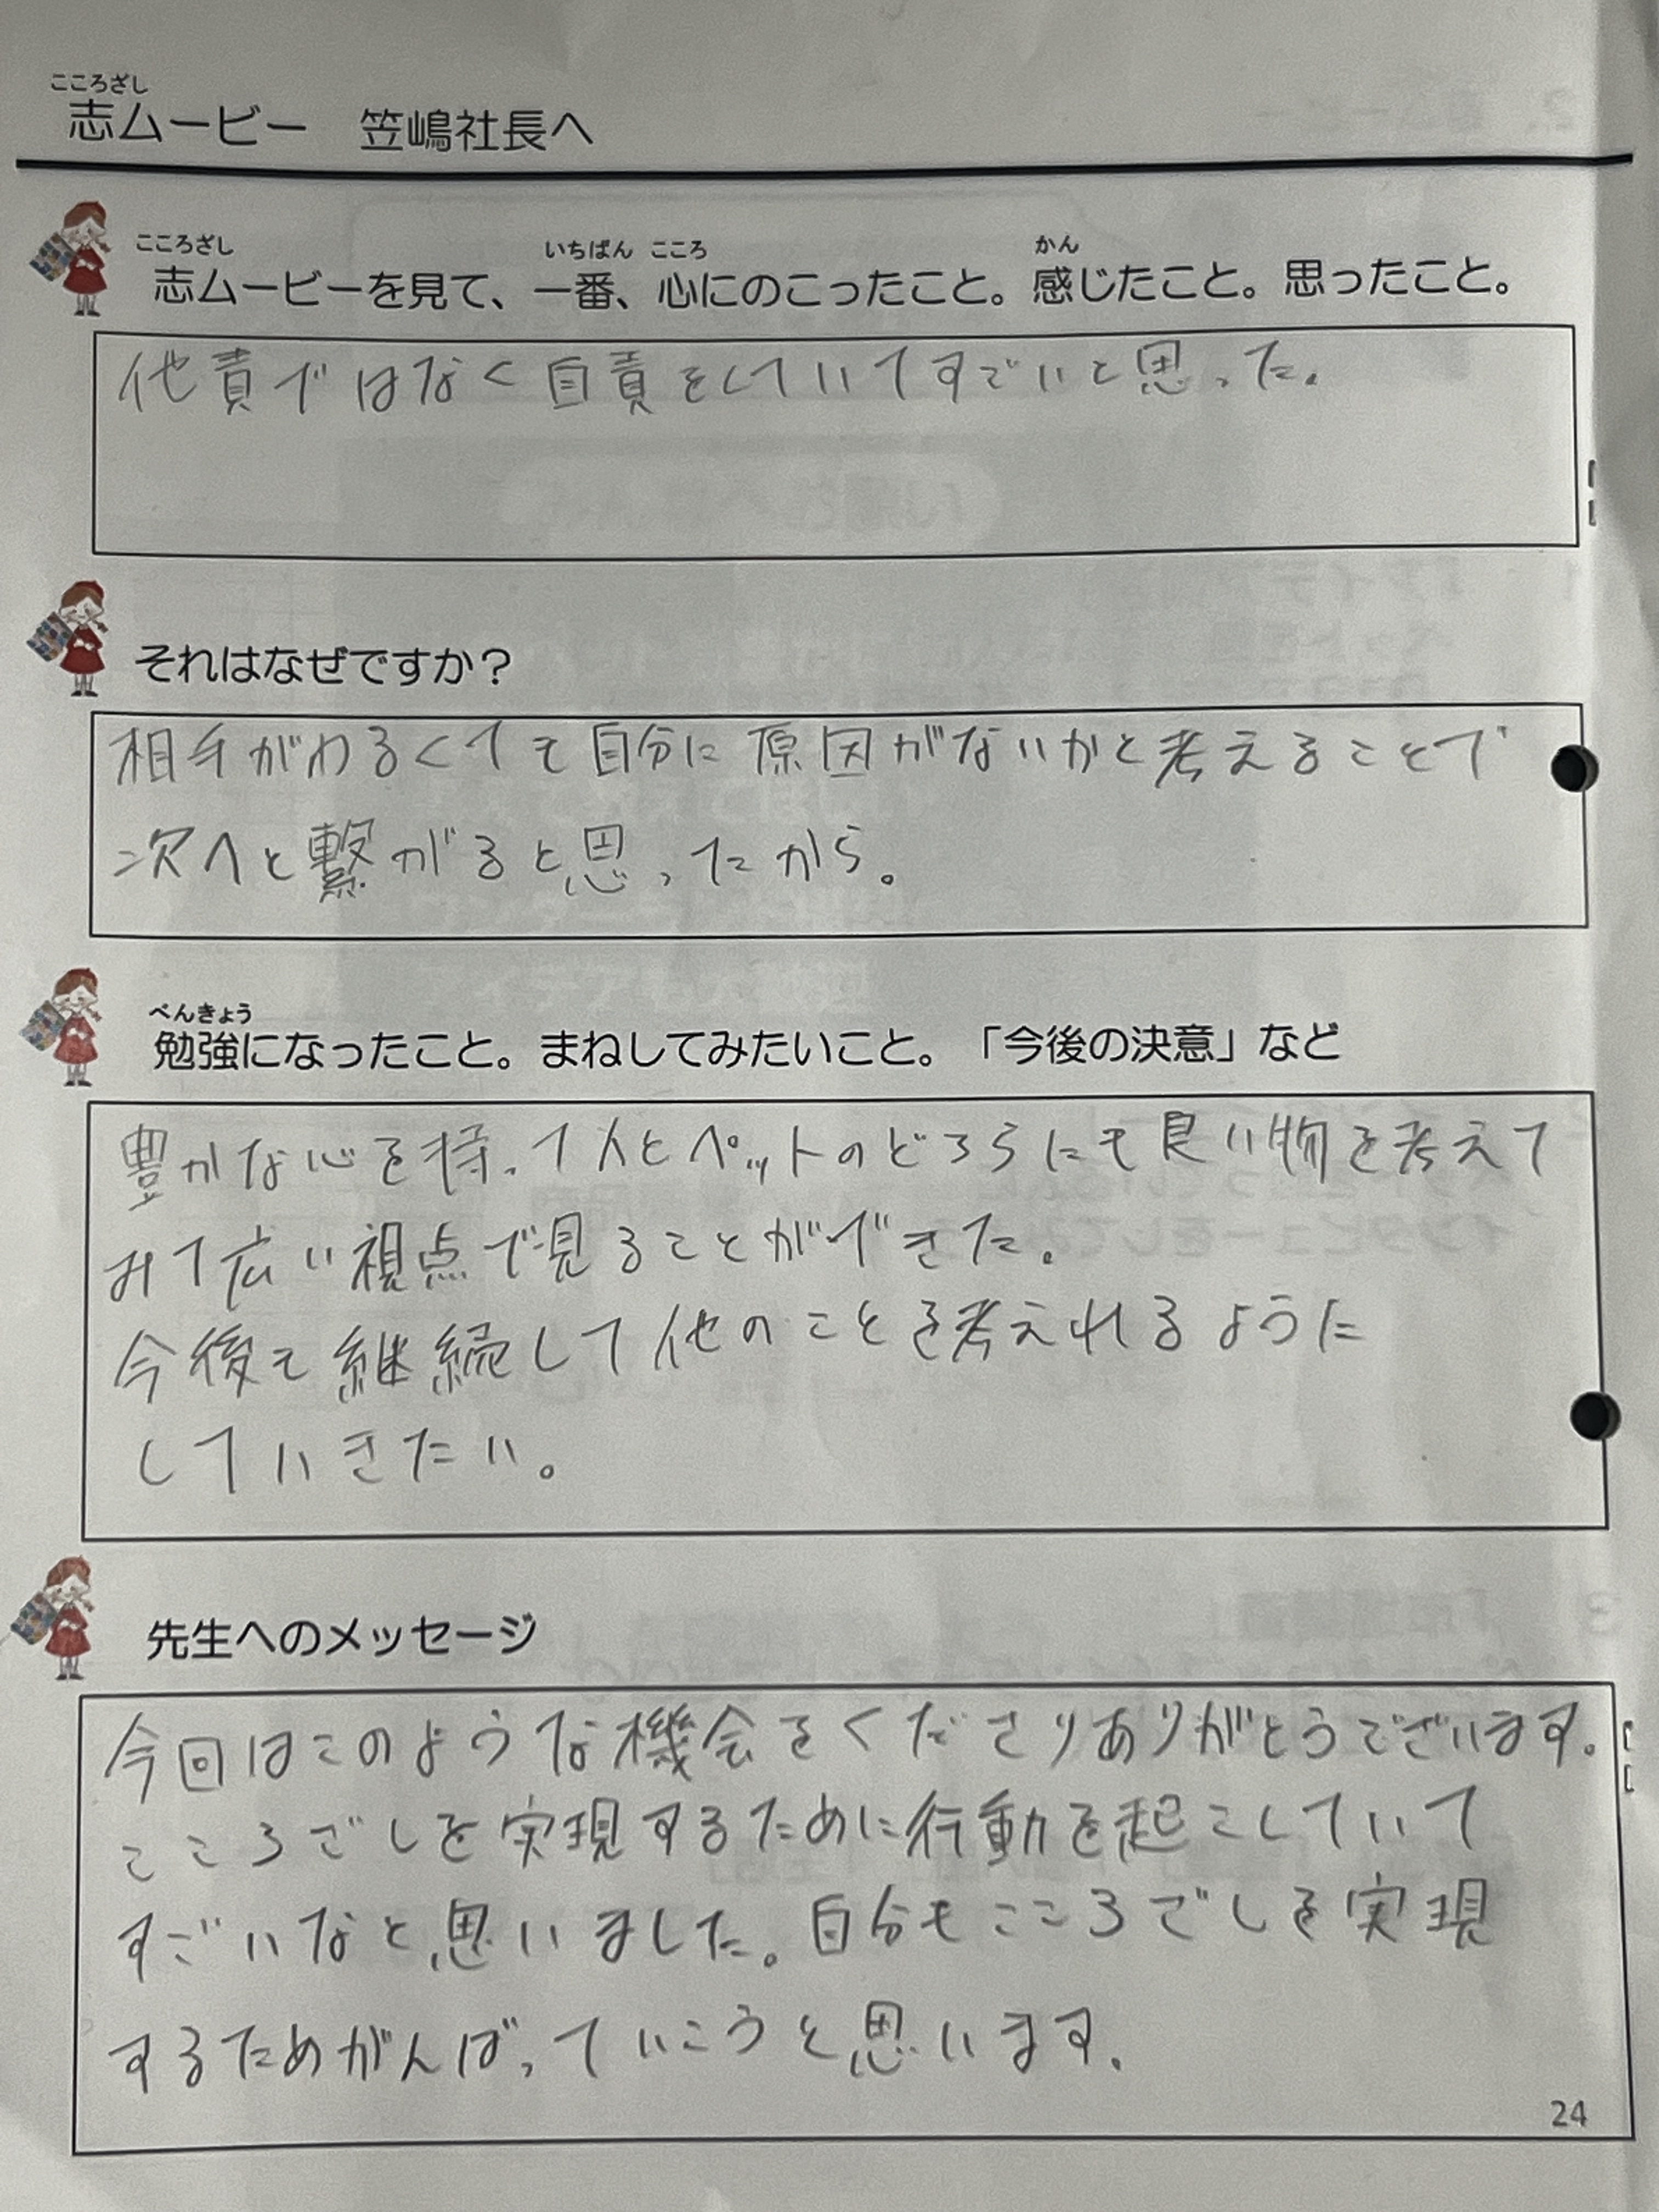 こころざし
志ムービー 笠嶋社長へ
こころざし いちばん こころ かん
志ムービーを見て、一番、心にのこったこと。感じたこと。思ったこと。
他責ではなく自責をしていてすごいと思った。
それはなぜですか？
相手がわるくても自分に原因がないかと考えることで
次へと繋がると思ったから。
べんきょう
勉強になったこと。まねしてみたいこと。「今後の決意」など
豊かな心を持って人とペットのどちらにも良い物を考えて
みて広い視点で見ることができた。
今後も継続して他のことを考えれるように
していきたい。
先生へのメッセージ
今回はこのような機会をくださりありがとうございます。
こころざしを実現するために行動を起こしていて
すごいなと思いました。自分もこころざしを実現
するためがんばっていこうと思います。
24